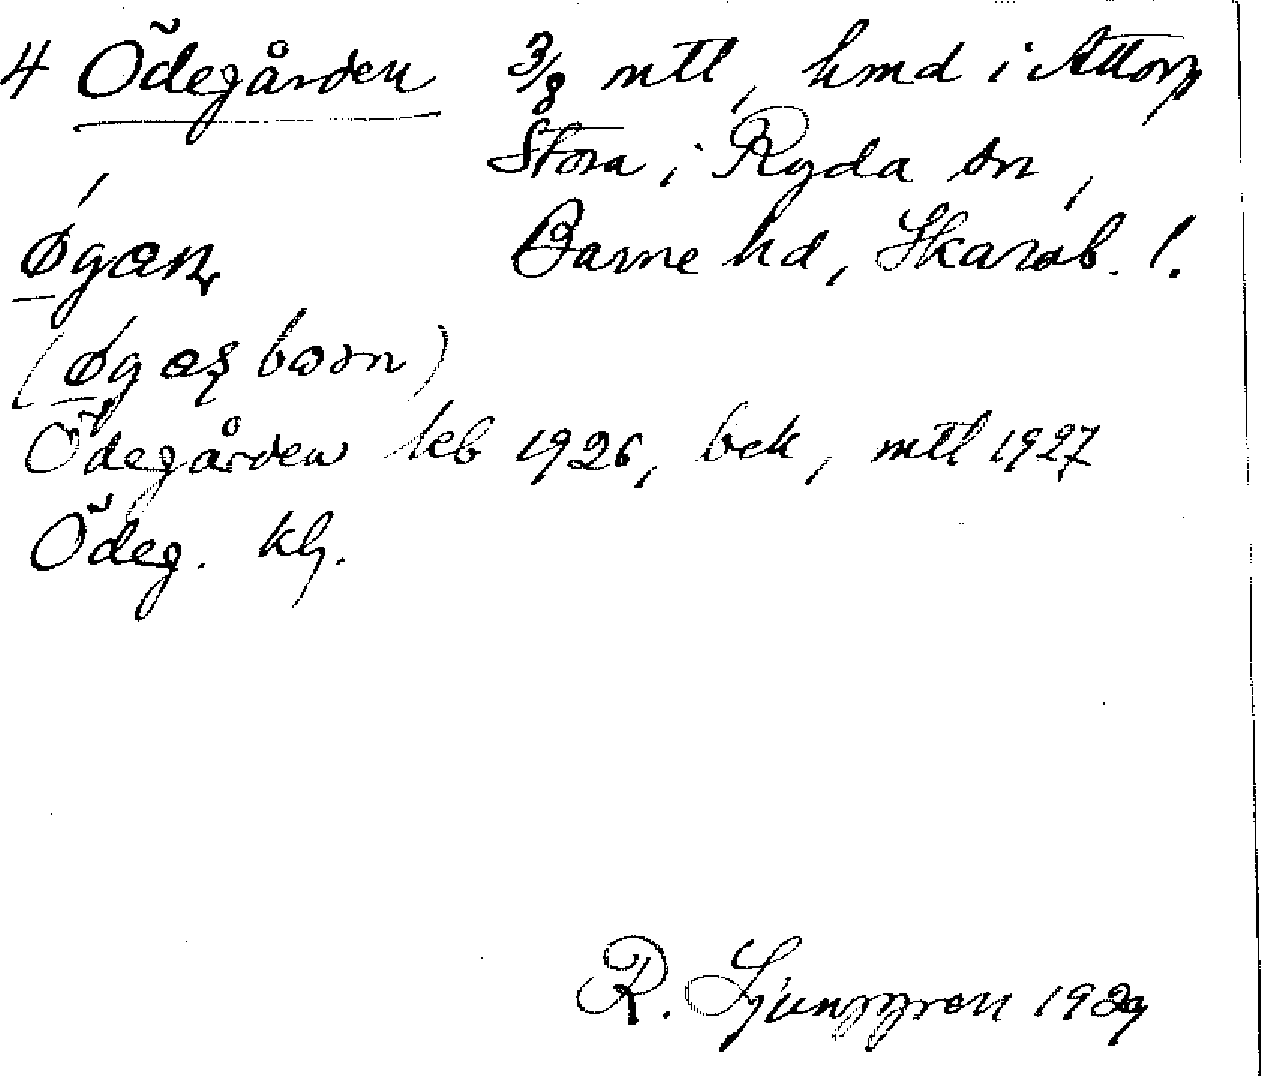 4 Ödegården 3/8 mtl, hmd i Attorp
Stora i Ryda sn,
øgæn Barne hd, Skarab. l.
(øgæs bǝrn)
Ödegården kb 1926, bek, mtl 1927
Ödeg. kb.
R. Ljunggren 1929